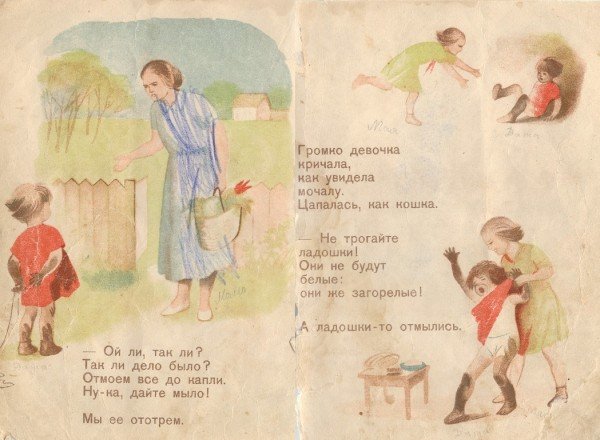 — Ой ли, так ли?
Так ли дело было?
Отмоем все до капли.
Ну-ка, дайте мыло!
Мы ее ототрем.
Громко девочка
кричала,
как увидела
мочалу.
Цапалась, как кошка.
— Не трогайте
ладошки!
Они не будут
белые:
они же загорелые!
А ладошки-то отмылись.